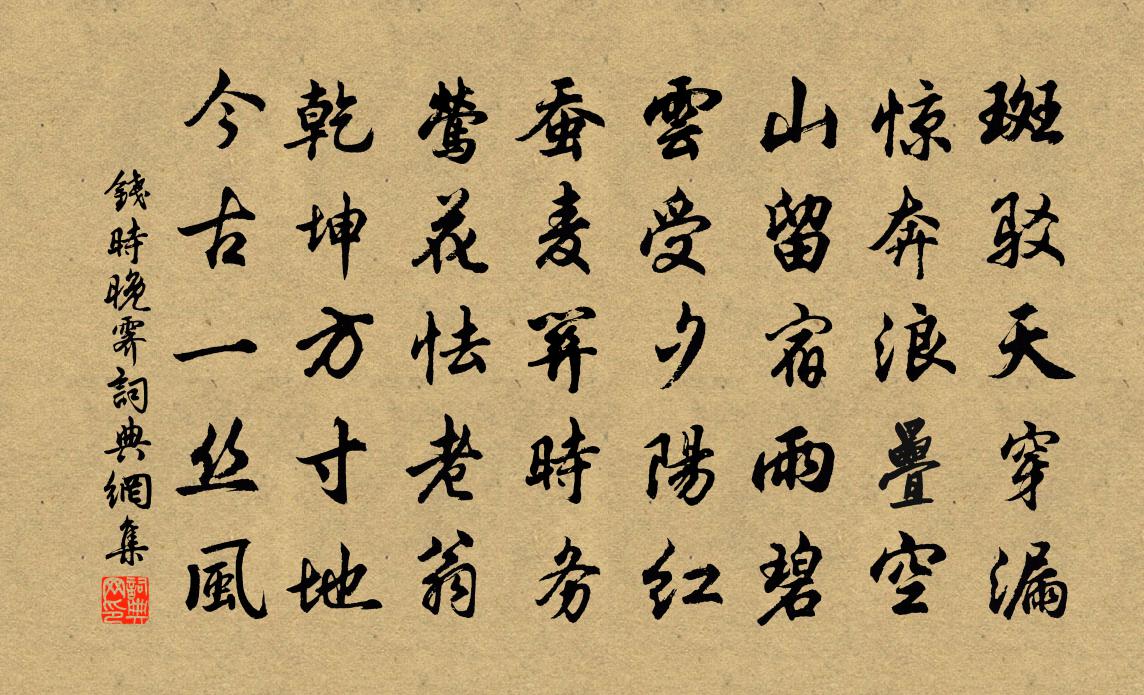 斑驳天穿漏
惊奔浪疊空
山留宿雨碧
雲受夕陽红
蚕麦筭時务
鶯花怯老翁
乾坤方寸地
今古一丝風
錢時晚霽詞典網集
詞典网印